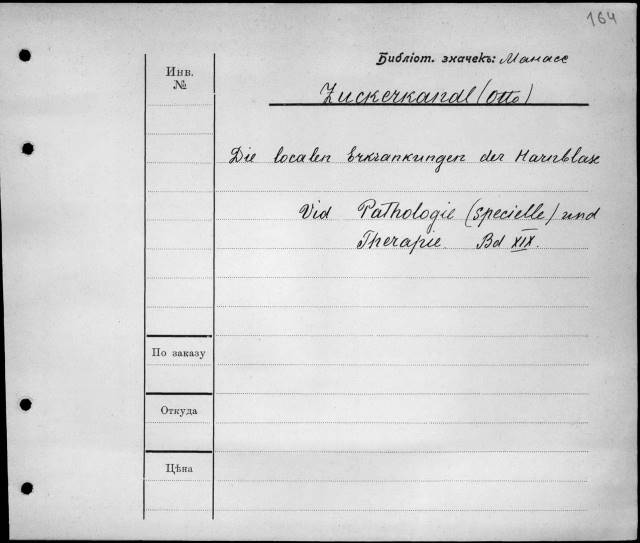 164
Библіот. значекъ: Манасе
Инв.
№
Zuckerkandl (Otto)
Die localen Erkrankungen der Harnblase
Vid Pathologie (specielle) und
Therapie. Bd XIX.
По заказу
Откуда
Цѣна